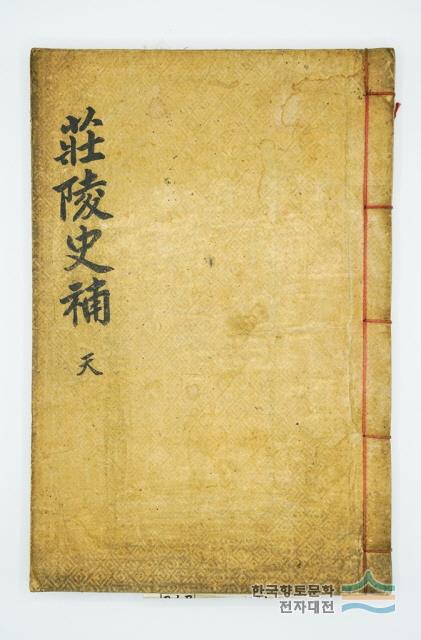 莊陵史補
天
한국향토문화
전자대전